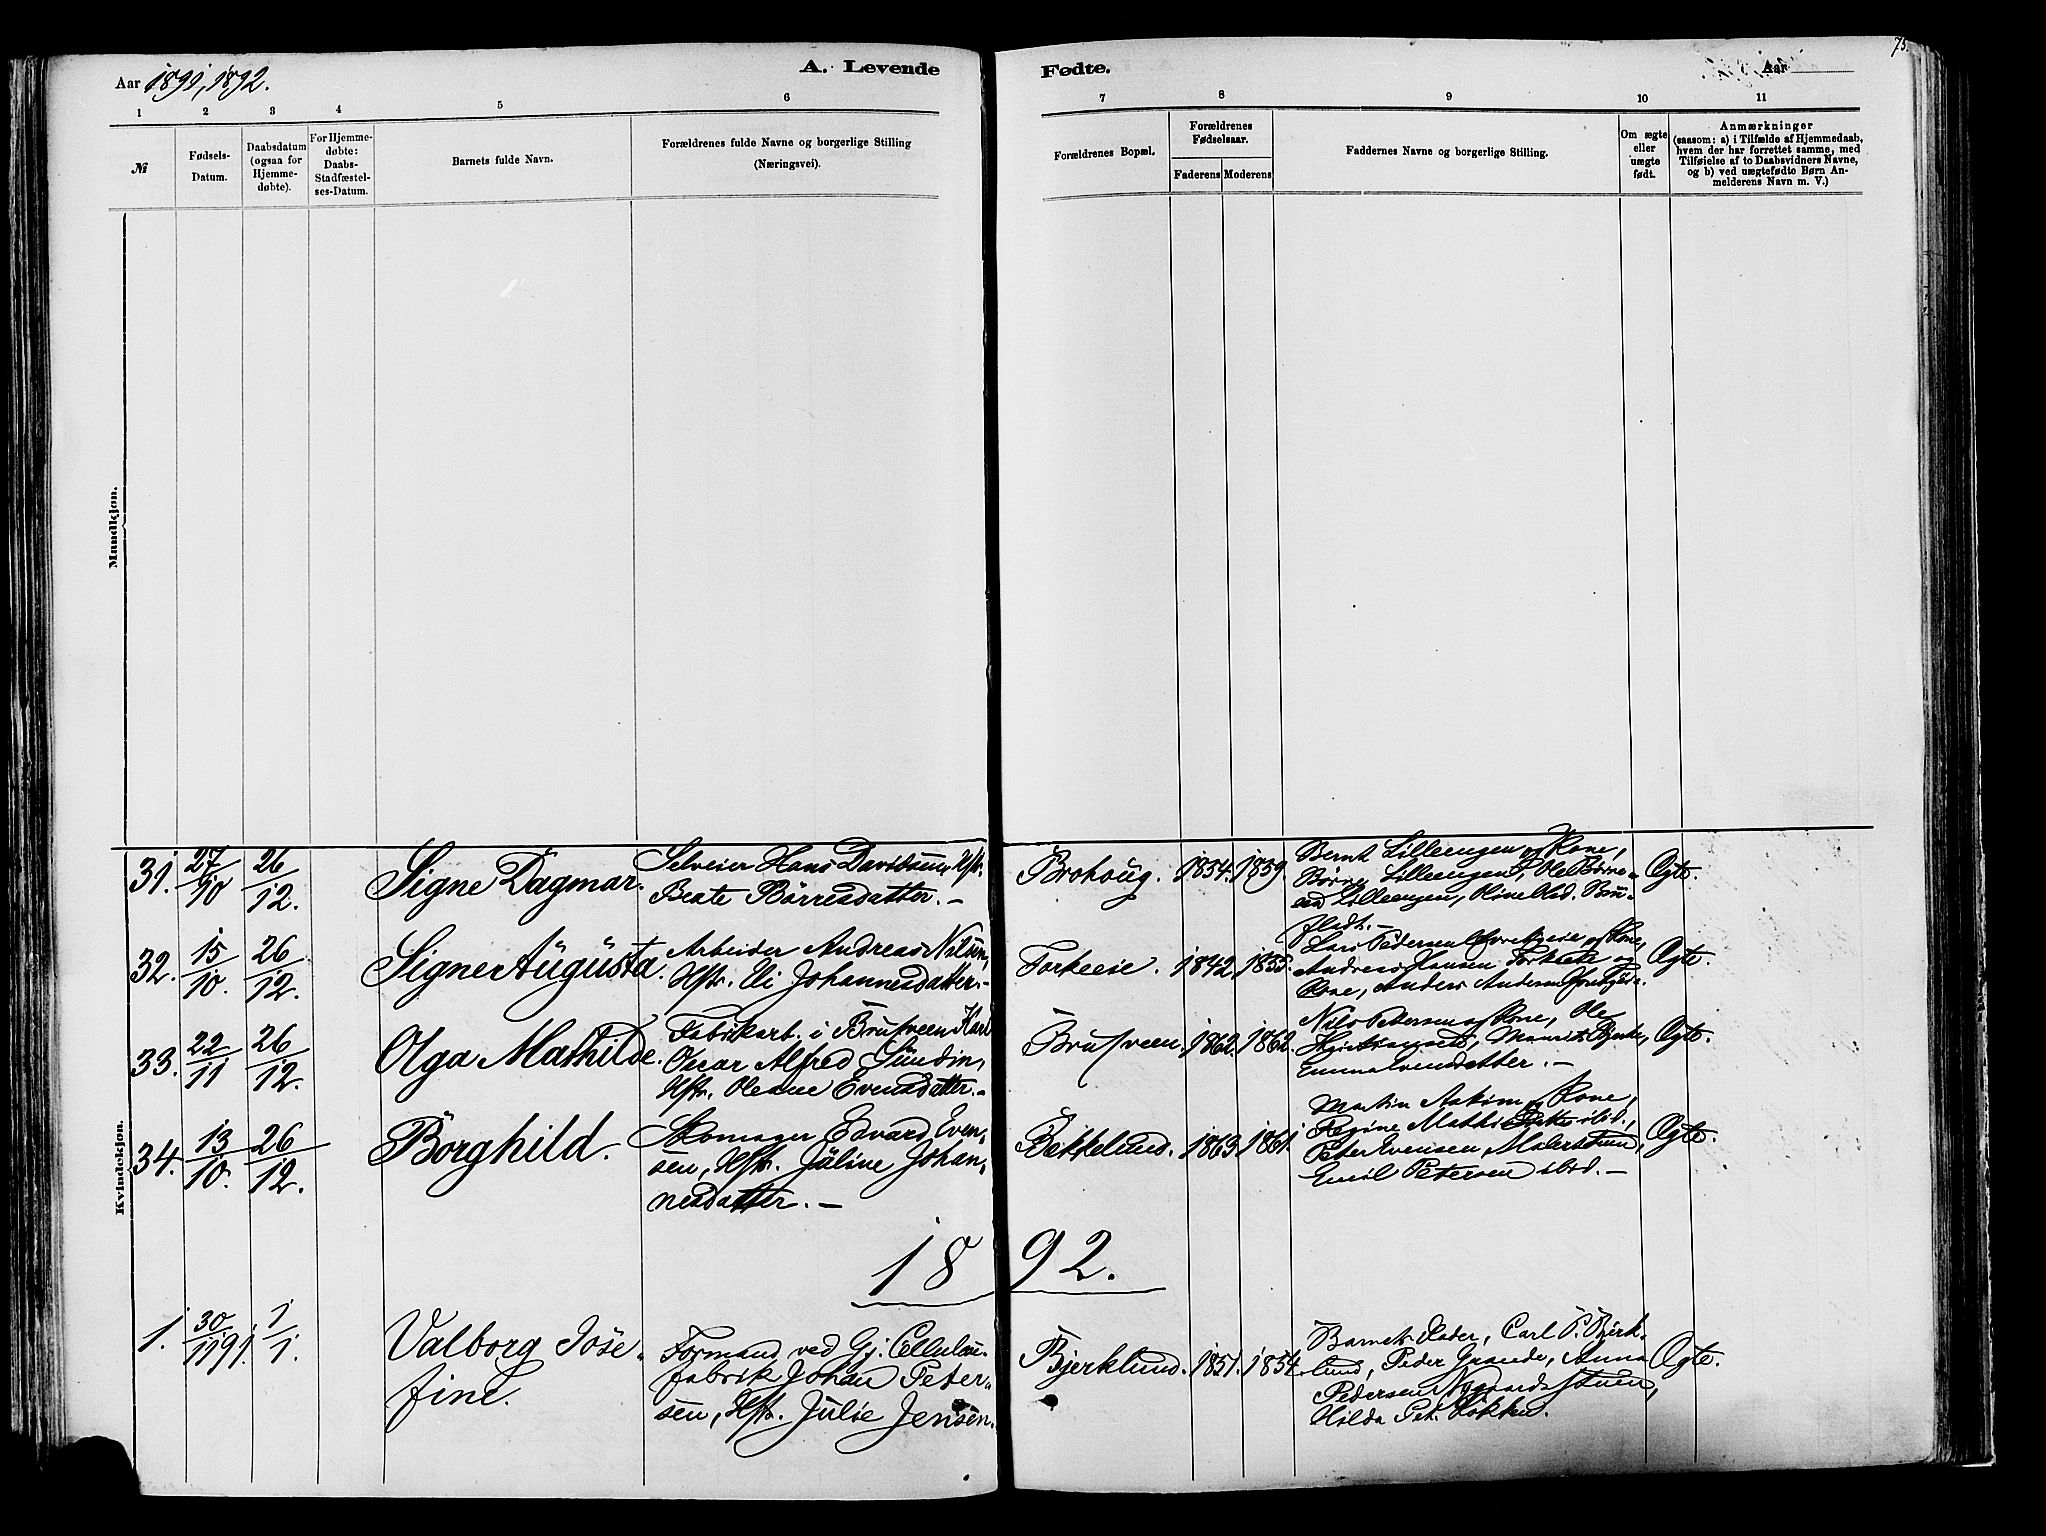 75.
Aar 1891, 1892.
A. Levende
Fødte.
Aar
1 2 3 4 5 6
7 8 9 10 11
№
Fødsels-
Datum.
Daabsdatum
(ogsaa for
Hjemme-
døbte).
For Hjemme-
døbte:
Daabs-
Stadfæstel-
ses-Datum.
Barnets fulde Navn.
Forældrenes fulde Navne og borgerlige Stilling
(Næringsvei).
Forældrenes Bopæl.
Forældrenes
Fødselsaar.
Faderens Moderens
Faddernes Navne og borgerlige Stilling.
Om ægte
eller
uægte
født.
Anmærkninger
(saasom: a) i Tilfælde af Hjemmedaab,
hvem der har forrettet samme, med
Tilføielse af to Daabsvidners Navne,
og b) ved uægtefødte Børn An-
melderens Navn m. V.)
Mandkjøn.
Kvindekjøn.
31. 27/10 26/12. Signe Dagmar.
Selveier Hans Davidsen, Hst.
Beate Børresdatter. —
Brohoug. 1854. 1859.
Bernt Lilleengen og Kone,
Børre Lilleengen, Ole Børre-
sen Lilleengen,
flodt. —
Ægte.
32. 15/10. 26/12. Signe Augusta.
Arbeider Andreas Nilsen,
Hst. Eli Johannesdatter. —
Torkeeie. 1842. 1855.
Lars Pedersen og Kone,
Andreas Hansen og
Kone, Anders Andersen
Ægte.
33. 22/11 26/12. Olga Mathilde.
Fabrikarb. i Brufveen Karl
Oscar Alfred Sundin,
Hst. Oleane Evensdatter. —
Brufveen. 1862. 1862.
Nils Petersen og Kone, Ole
Emma Evensdatter. —
Ægte.
34. 13/10. 26/12. Borghild.
Skomager Edvard Even-
sen, Hst. Juline Johan-
nesdatter. —
Bekkelund. 1863. 1861.
Martin Aasom og Kone,
Regine ibid.,
Peter Evensen,
Emil Petersen ibid. —
Ægte.
1892.
1. 30/11 91. 1/1. Valborg Jose-
fine.
Formand ved Gj. Cellulou-
fabrik Johan Peter-
sen, Hst. Julie Jensen.
Bjerklund. 1851. 1854.
Barnets Fader, Carl P. Bjerk-
lund, Peder Grande, Anna
Pedersen Nygaardsstuen,
Hilda Pet. Løkken.
Ægte.